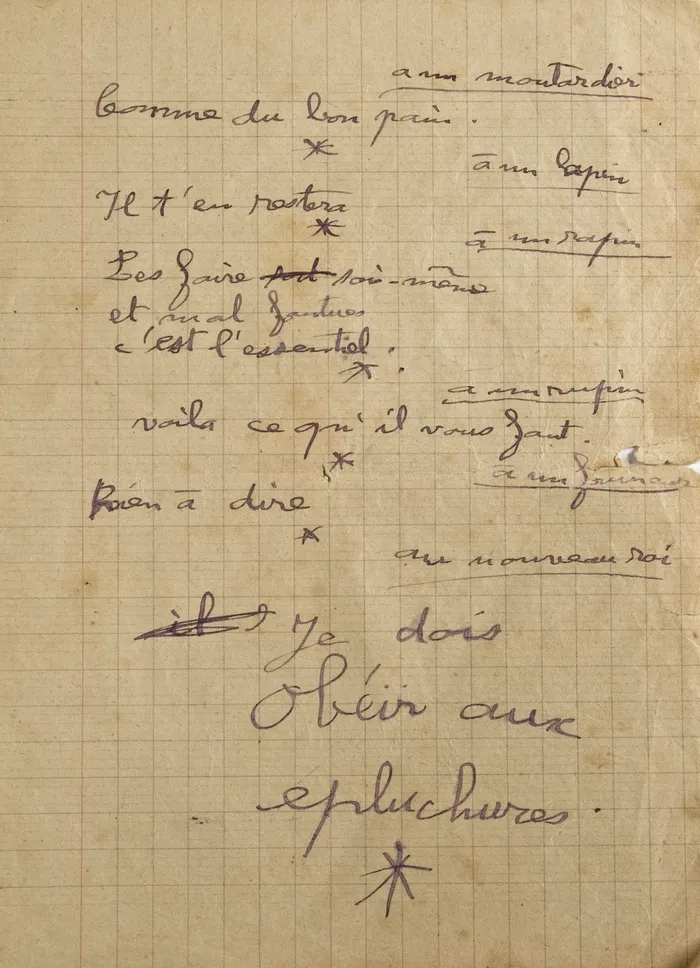 a un moutardier
Comme du bon pain.
à un lapin
Il t'en restera
à un rapin
Les faire soi-même
et mal foutues
c'est l'essentiel.
a un rupin
voila ce qu'il vous faut.
à un fumeur
Rien à dire
au nouveau roi
il Je dois
Obéir aux
epluchures.